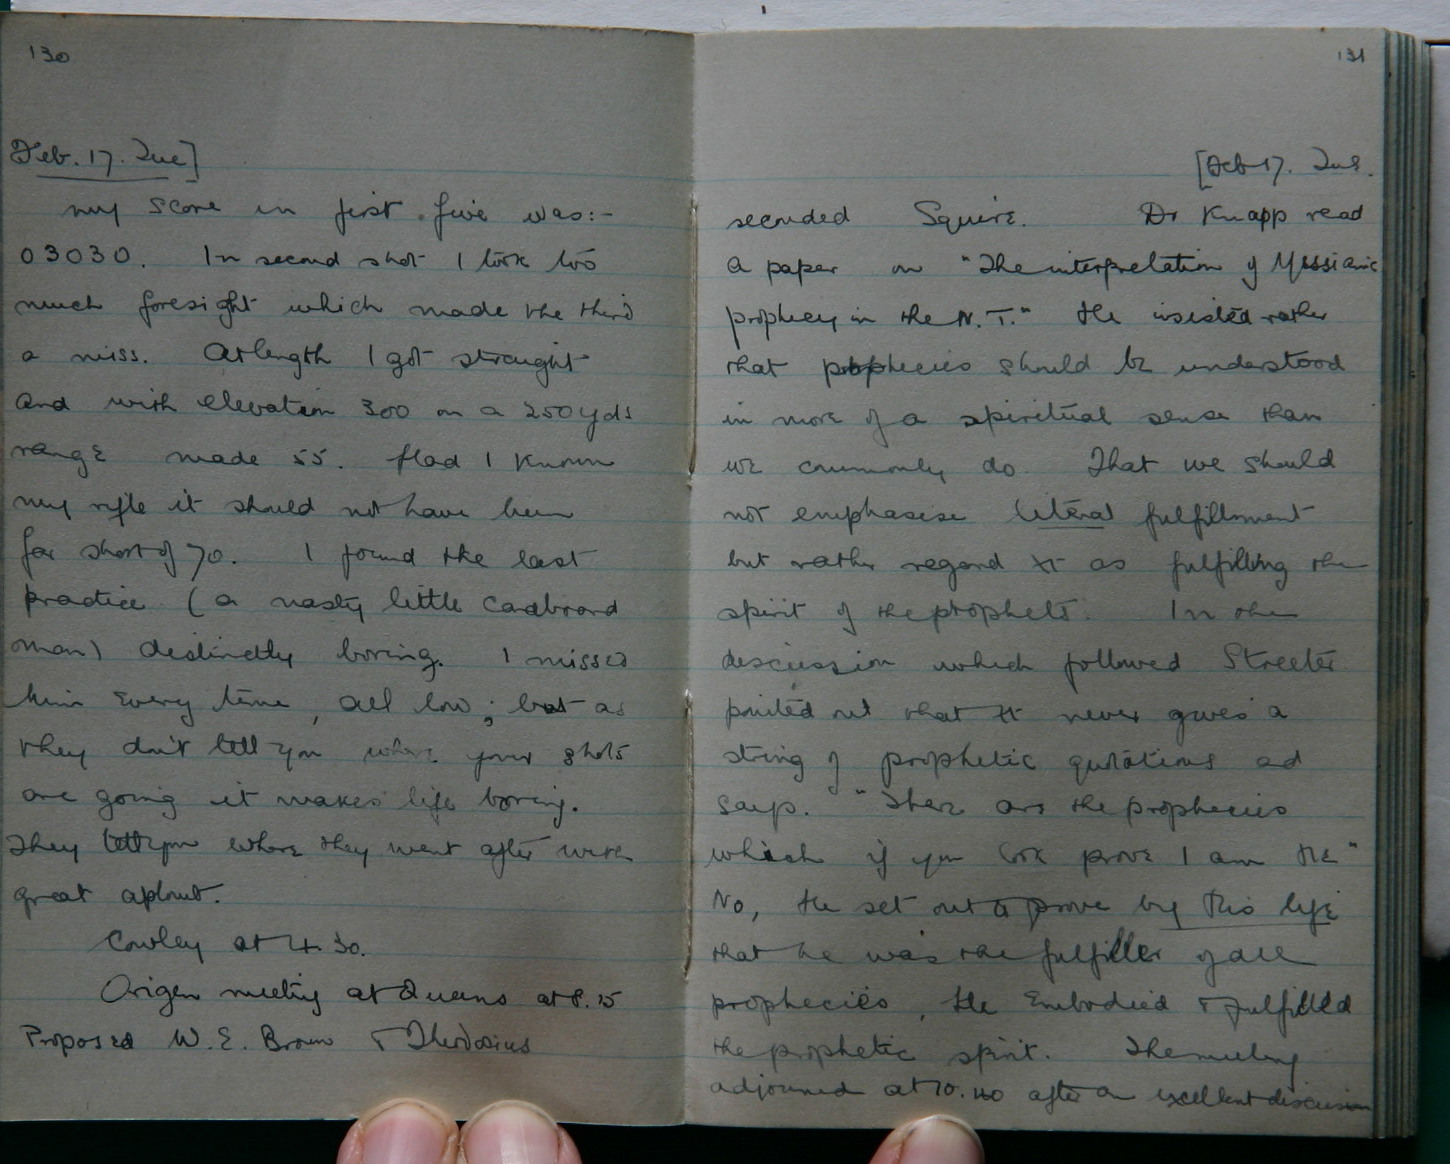 130
Feb. 17. Tue]
my score in first five was:-
03030. In second shot I took too
much foresight which made the third
a miss. At length I got straight
and with elevation 300 on a 250 yds
range made 55. Had I known
my rifle it should not have been
far short of 70. I found the last
practice (a nasty little cardboard
man) distinctly boring. I missed
him every time, all low; but as
they don't tell you where your shots
are going it makes life boring.
They tell you where they went after with
great aplomb.
Cowley at 4.30.
Origen meeting at Queens at 8.15
Proposed W. E. Brown & Theodosius
131
[Feb 17. Tue.
seconded Squire. Dr Knapp read
a paper on "The interpretation of Messianic
prophecy in the N.T." He insisted rather
that prophecies should be understood
in more of a spiritual sense than
we commonly do. That we should
not emphasise literal fulfillment
but rather regard Xt as fulfilling the
spirit of the prophets. In the
discussion which followed Streeter
pointed out that Xt never gives a
string of prophetic quotations ad
says. "These are the prophecies
which if you look prove I am He"
No, He set out to prove by this life
that he was the fulfiller of all
prophecies, He embodied & fulfilled
the prophetic spirit. The meeting
adjourned at 10.40 after an excellent discussion